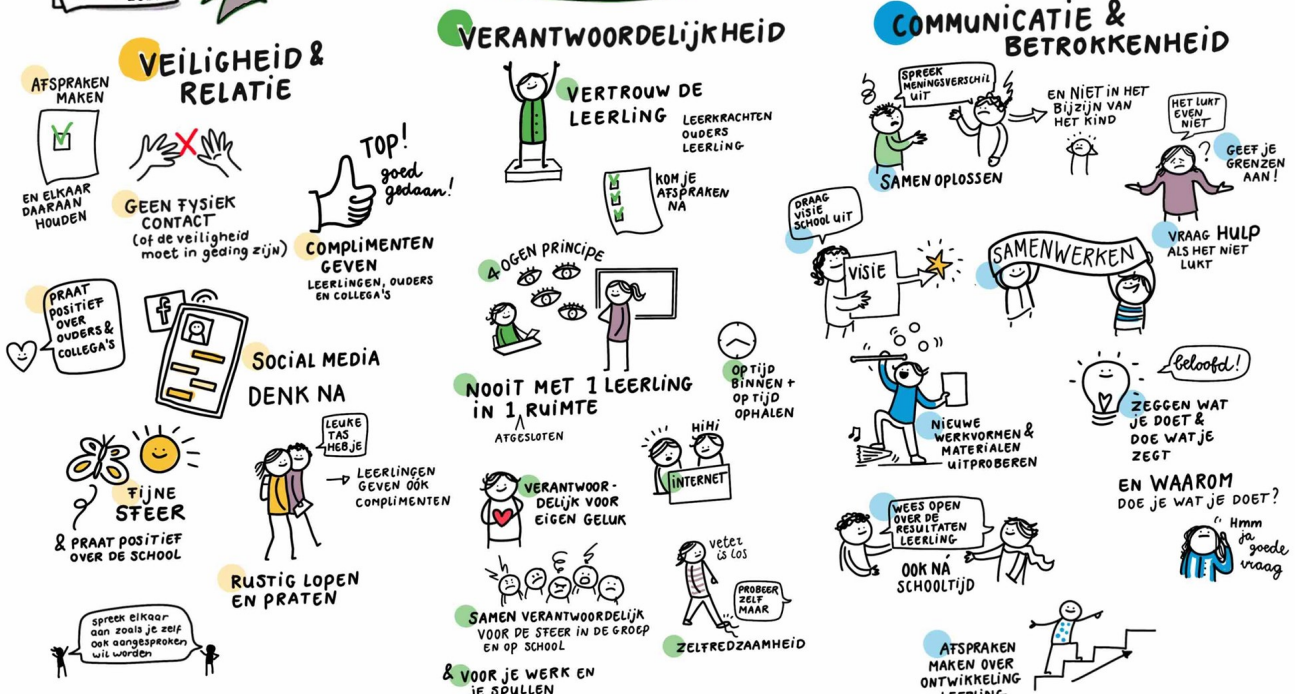 VEILIGHEID &
RELATIE
AFSPRAKEN
MAKEN
EN ELKAAR
DAARAAN
HOUDEN
GEEN FYSIEK
CONTACT
(of de veiligheid
moet in geding zijn)
TOP!
goed
gedaan!
COMPLIMENTEN
GEVEN
LEERLINGEN, OUDERS
EN COLLEGA'S
PRAAT
POSITIEF
OVER
OUDERS &
COLLEGA'S
f
SOCIAL MEDIA
DENK NA
FIJNE
SFEER
& PRAAT POSITIEF
OVER DE SCHOOL
LEUKE
TAS
HEB JE
LEERLINGEN
GEVEN OÓK
COMPLIMENTEN
RUSTIG LOPEN
EN PRATEN
spreek elkaar
aan zoals je zelf
ook aangesproken
wil worden
VERANTWOORDELIJKHEID
VERTROUW DE
LEERLING
LEERKRACHTEN
OUDERS
LEERLING
KOM JE
AFSPRAKEN
NA
4 OGEN PRINCIPE
NOOIT MET 1 LEERLING
IN 1 RUIMTE
AFGESLOTEN
OP TIJD
BINNEN +
OP TIJD
OPHALEN
HiHi
INTERNET
VERANTWOOR-
DELIJK VOOR
EIGEN GELUK
SAMEN VERANTWOORDELIJK
VOOR DE SFEER IN DE GROEP
EN OP SCHOOL
veter
is los
PROBEER
ZELF
MAAR
ZELFREDZAAMHEID
& VOOR JE WERK EN
JE SPULLEN
COMMUNICATIE &
BETROKKENHEID
SPREEK
MENINGSVERSCHIL
UIT
EN NIET IN HET
BIJZIJN VAN
HET KIND
SAMEN OPLOSSEN
HET LUKT
EVEN
NIET
?
GEEF JE
GRENZEN
AAN!
VRAAG HULP
ALS HET NIET
LUKT
DRAAG
VISIE
SCHOOL UIT
VISIE
SAMENWERKEN
NIEUWE
WERKVORMEN &
MATERIALEN
UITPROBEREN
beloofd!
ZEGGEN WAT
JE DOET &
DOE WAT JE
ZEGT
EN WAAROM
DOE JE WAT JE DOET?
Hmm
ja
goede
vraag
WEES OPEN
OVER DE
RESULTATEN
LEERLING
OOK NÁ
SCHOOLTIJD
AFSPRAKEN
MAKEN OVER
ONTWIKKELING
LEERLING